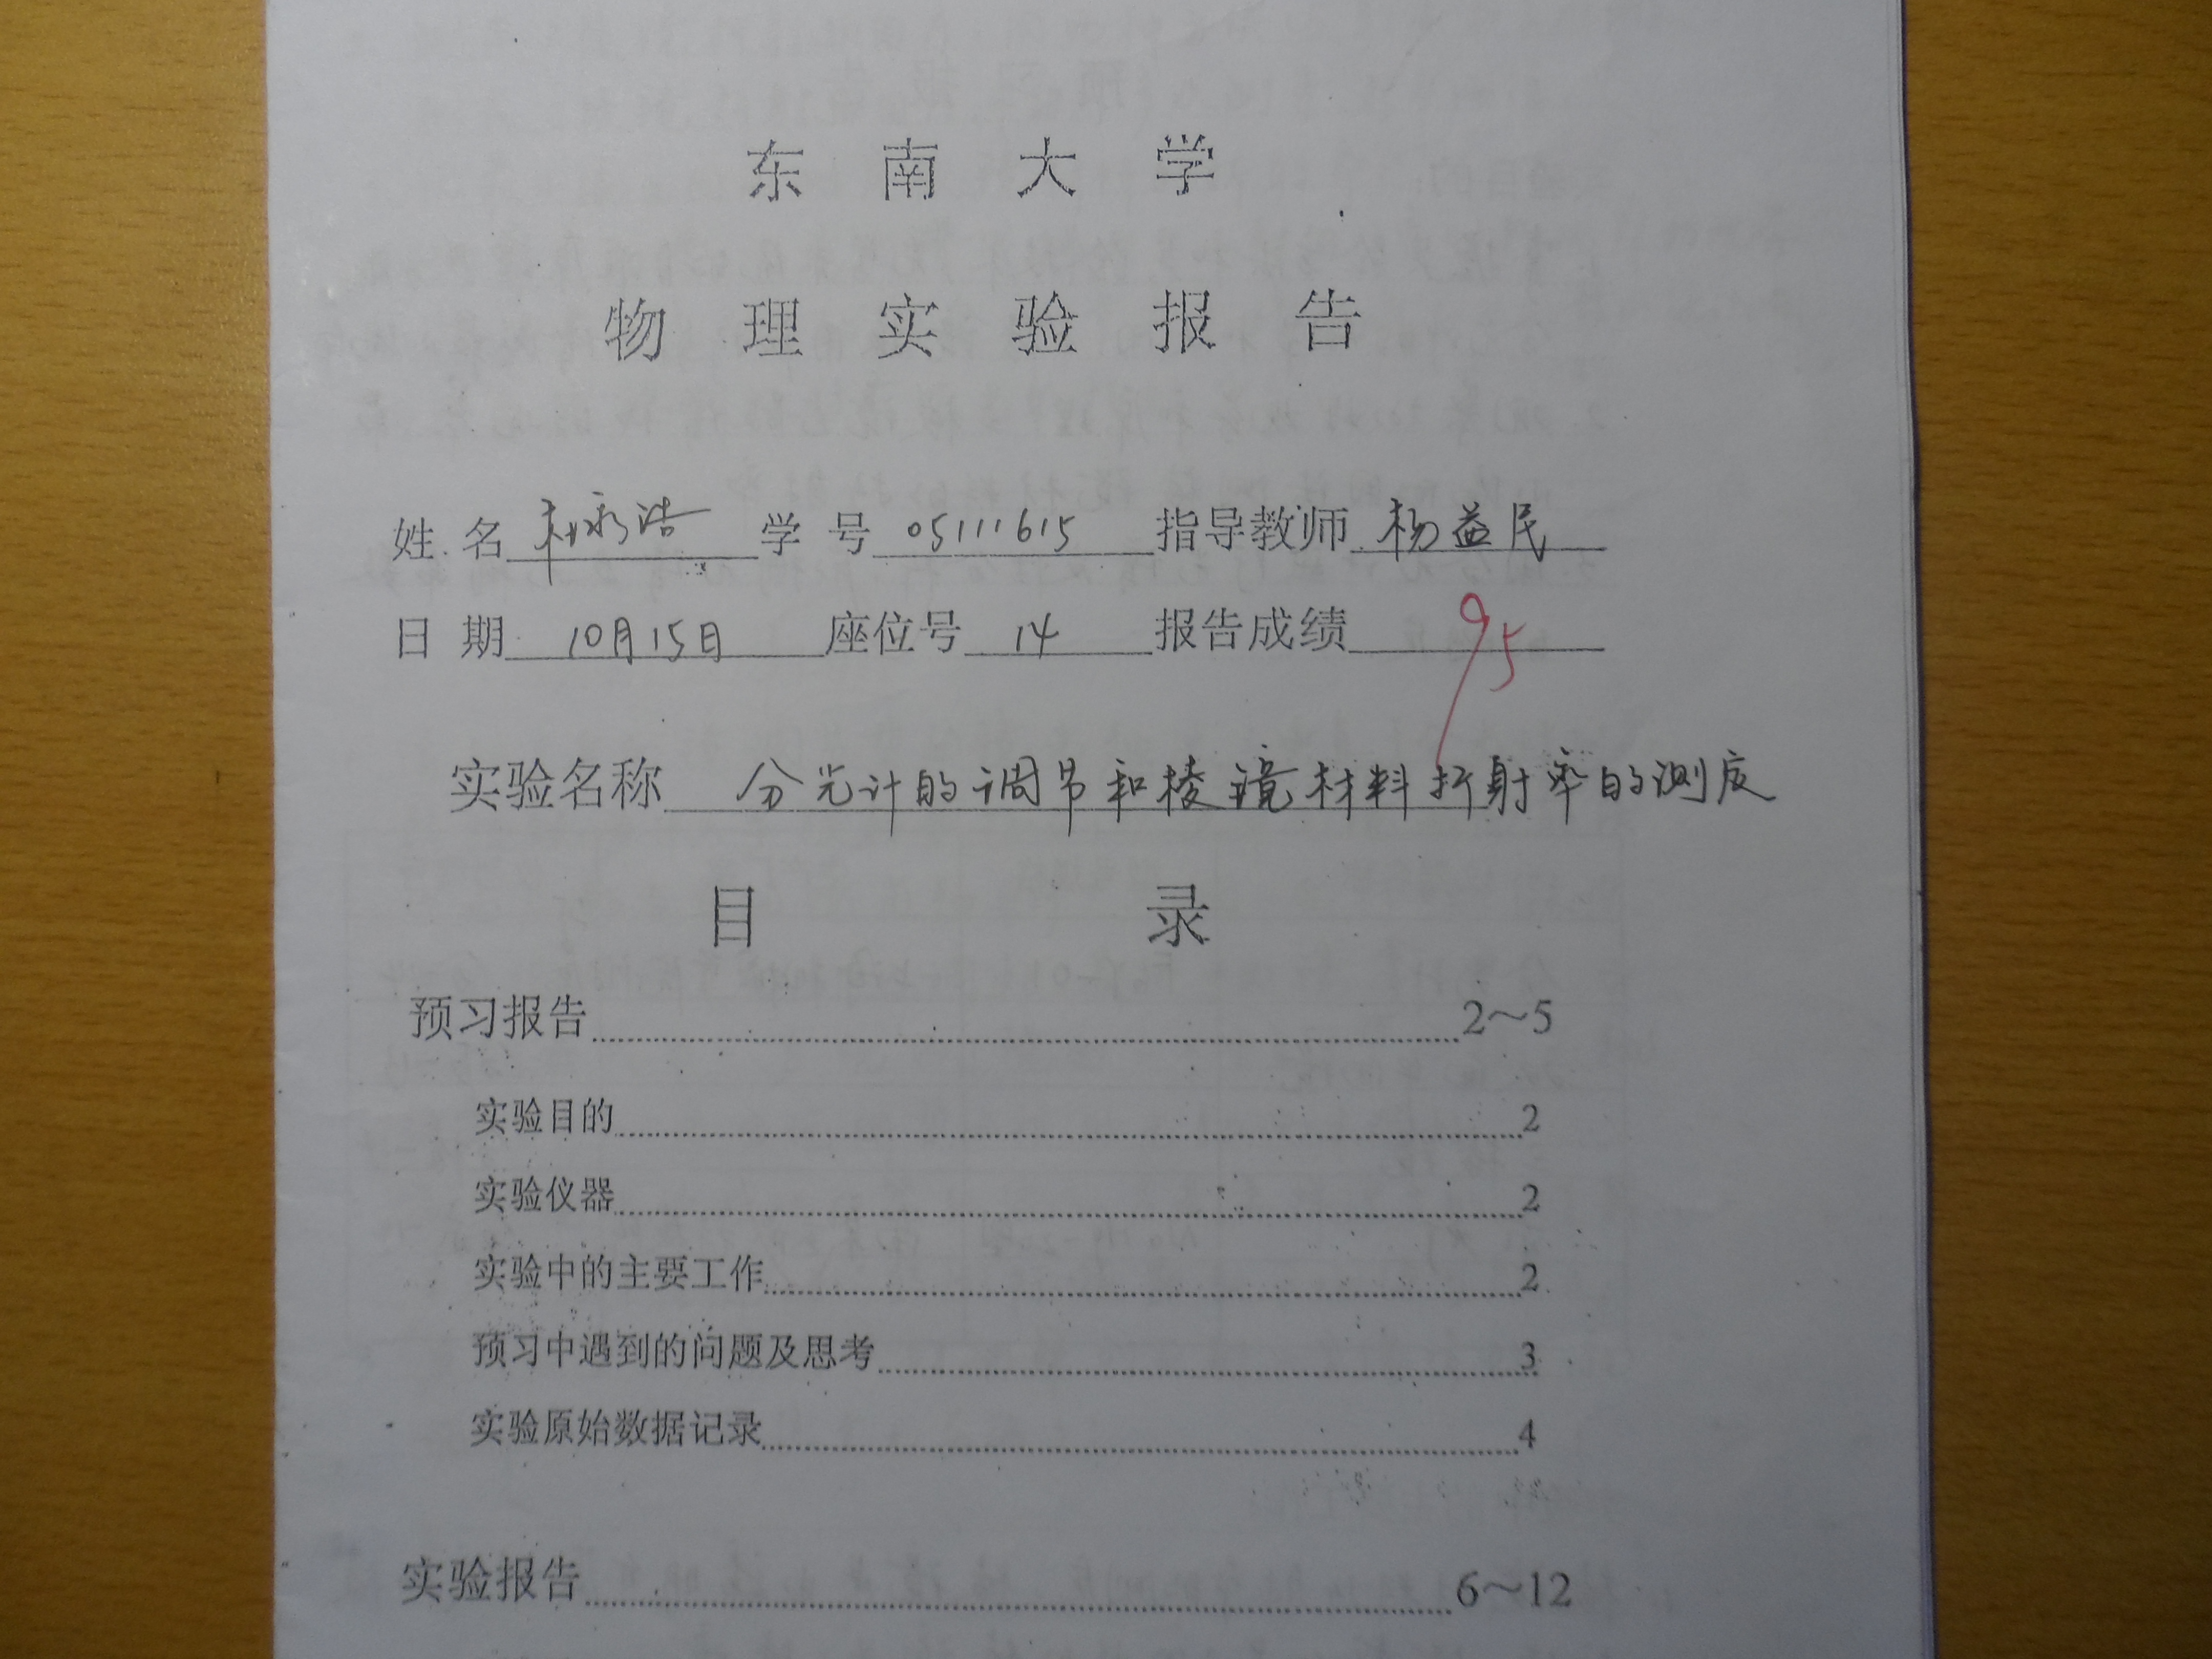 东南大学
物理实验报告
姓名 林永浩 学号 05111615 指导教师 杨益民
日期 10月15日 座位号 14 报告成绩 95
实验名称 分光计的调节和棱镜材料折射率的测度
目录
预习报告 2～5
实验目的 2
实验仪器 2
实验中的主要工作 2
预习中遇到的问题及思考 3
实验原始数据记录 4
实验报告 6～12